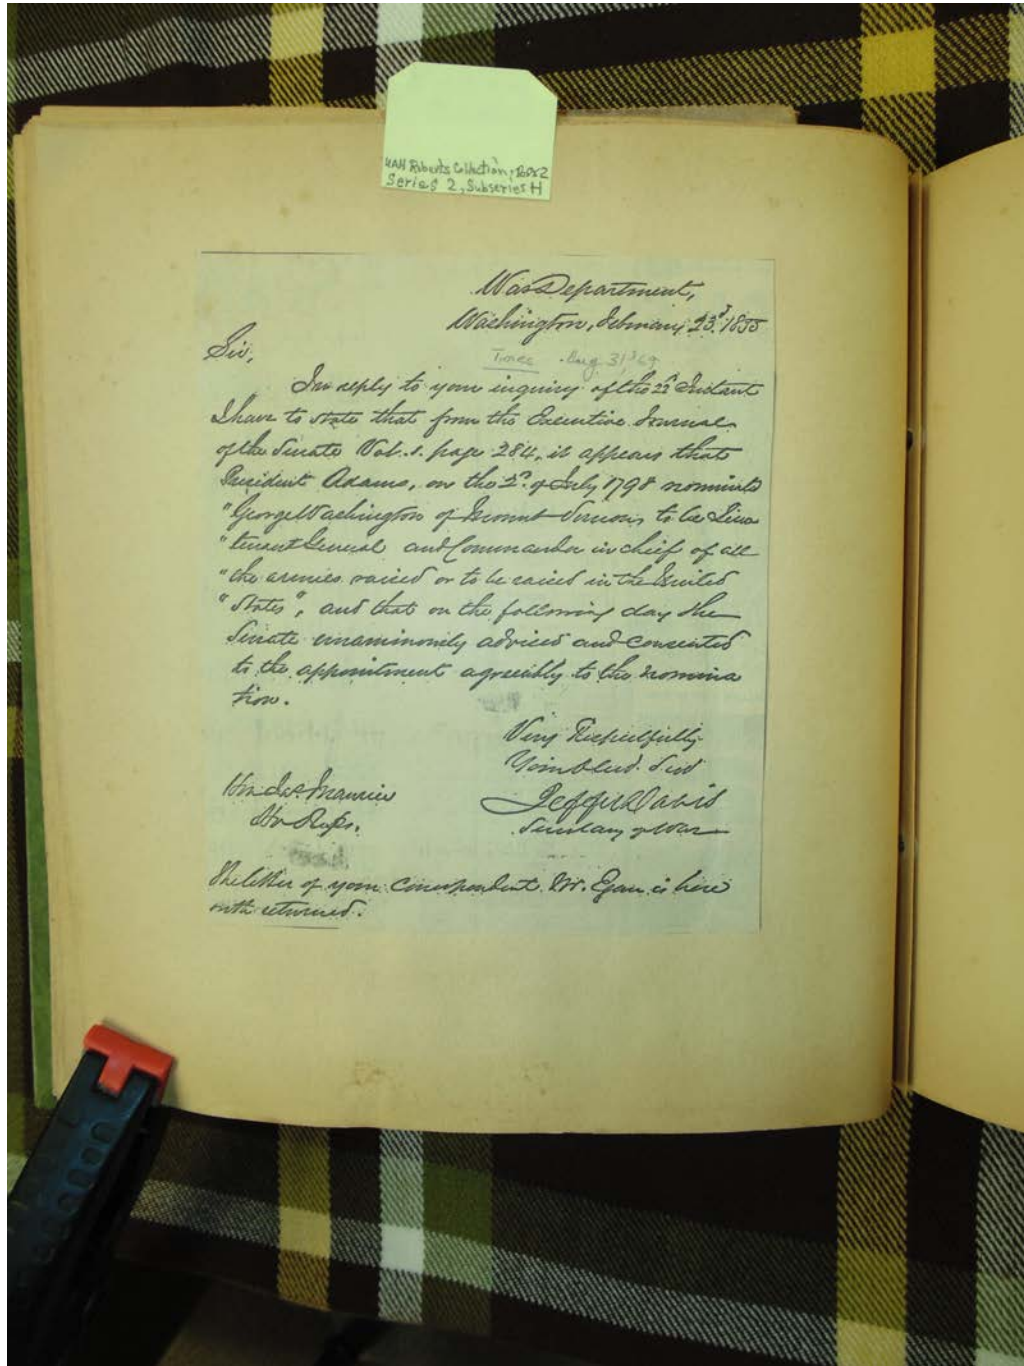 UAH Roberts Collection, Box 2
Series 2, Subseries H
War Department,
Washington, February 23d. 1855
Sir,
Times Aug 31st 69
In reply to your inquiry of the 22d Instant
I have to state that from the Executive Journal
of the Senate Vol. 1. page 284, it appears that
President Adams, on the 2d. of July 1798 nominated
"George Washington of Mount Vernon to be Lieu
"tenant General and Commander in chief of all
"the armies raised or to be raised in the United
"States", and that on the following day the
Senate unanimously advised and consented
to the appointment agreeably to the nomina
tion.
Very Respectfully
Your Obed. Serv
Jeffn Davis
Secretary of War
Hon Jas. Maurice
Ho Reps.
The letter of your correspondent Mr. Egan is here
with returned.